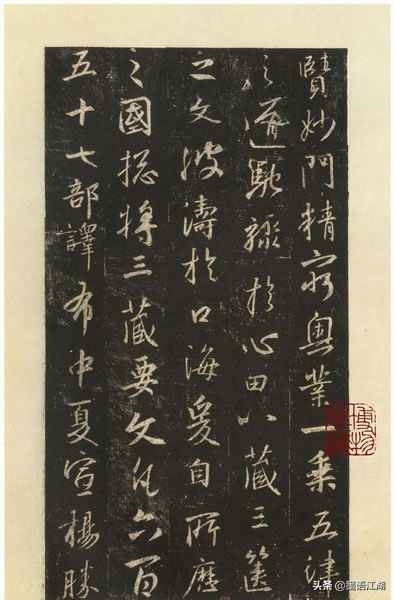 賢妙門精窮奧業一乘五律
之道馳驟於心田八藏三篋
之文波濤於口海爰自所歷
之國揔將三藏要文凡六百
五十七部譯布中夏宣揚勝
头条 @墨语江湖